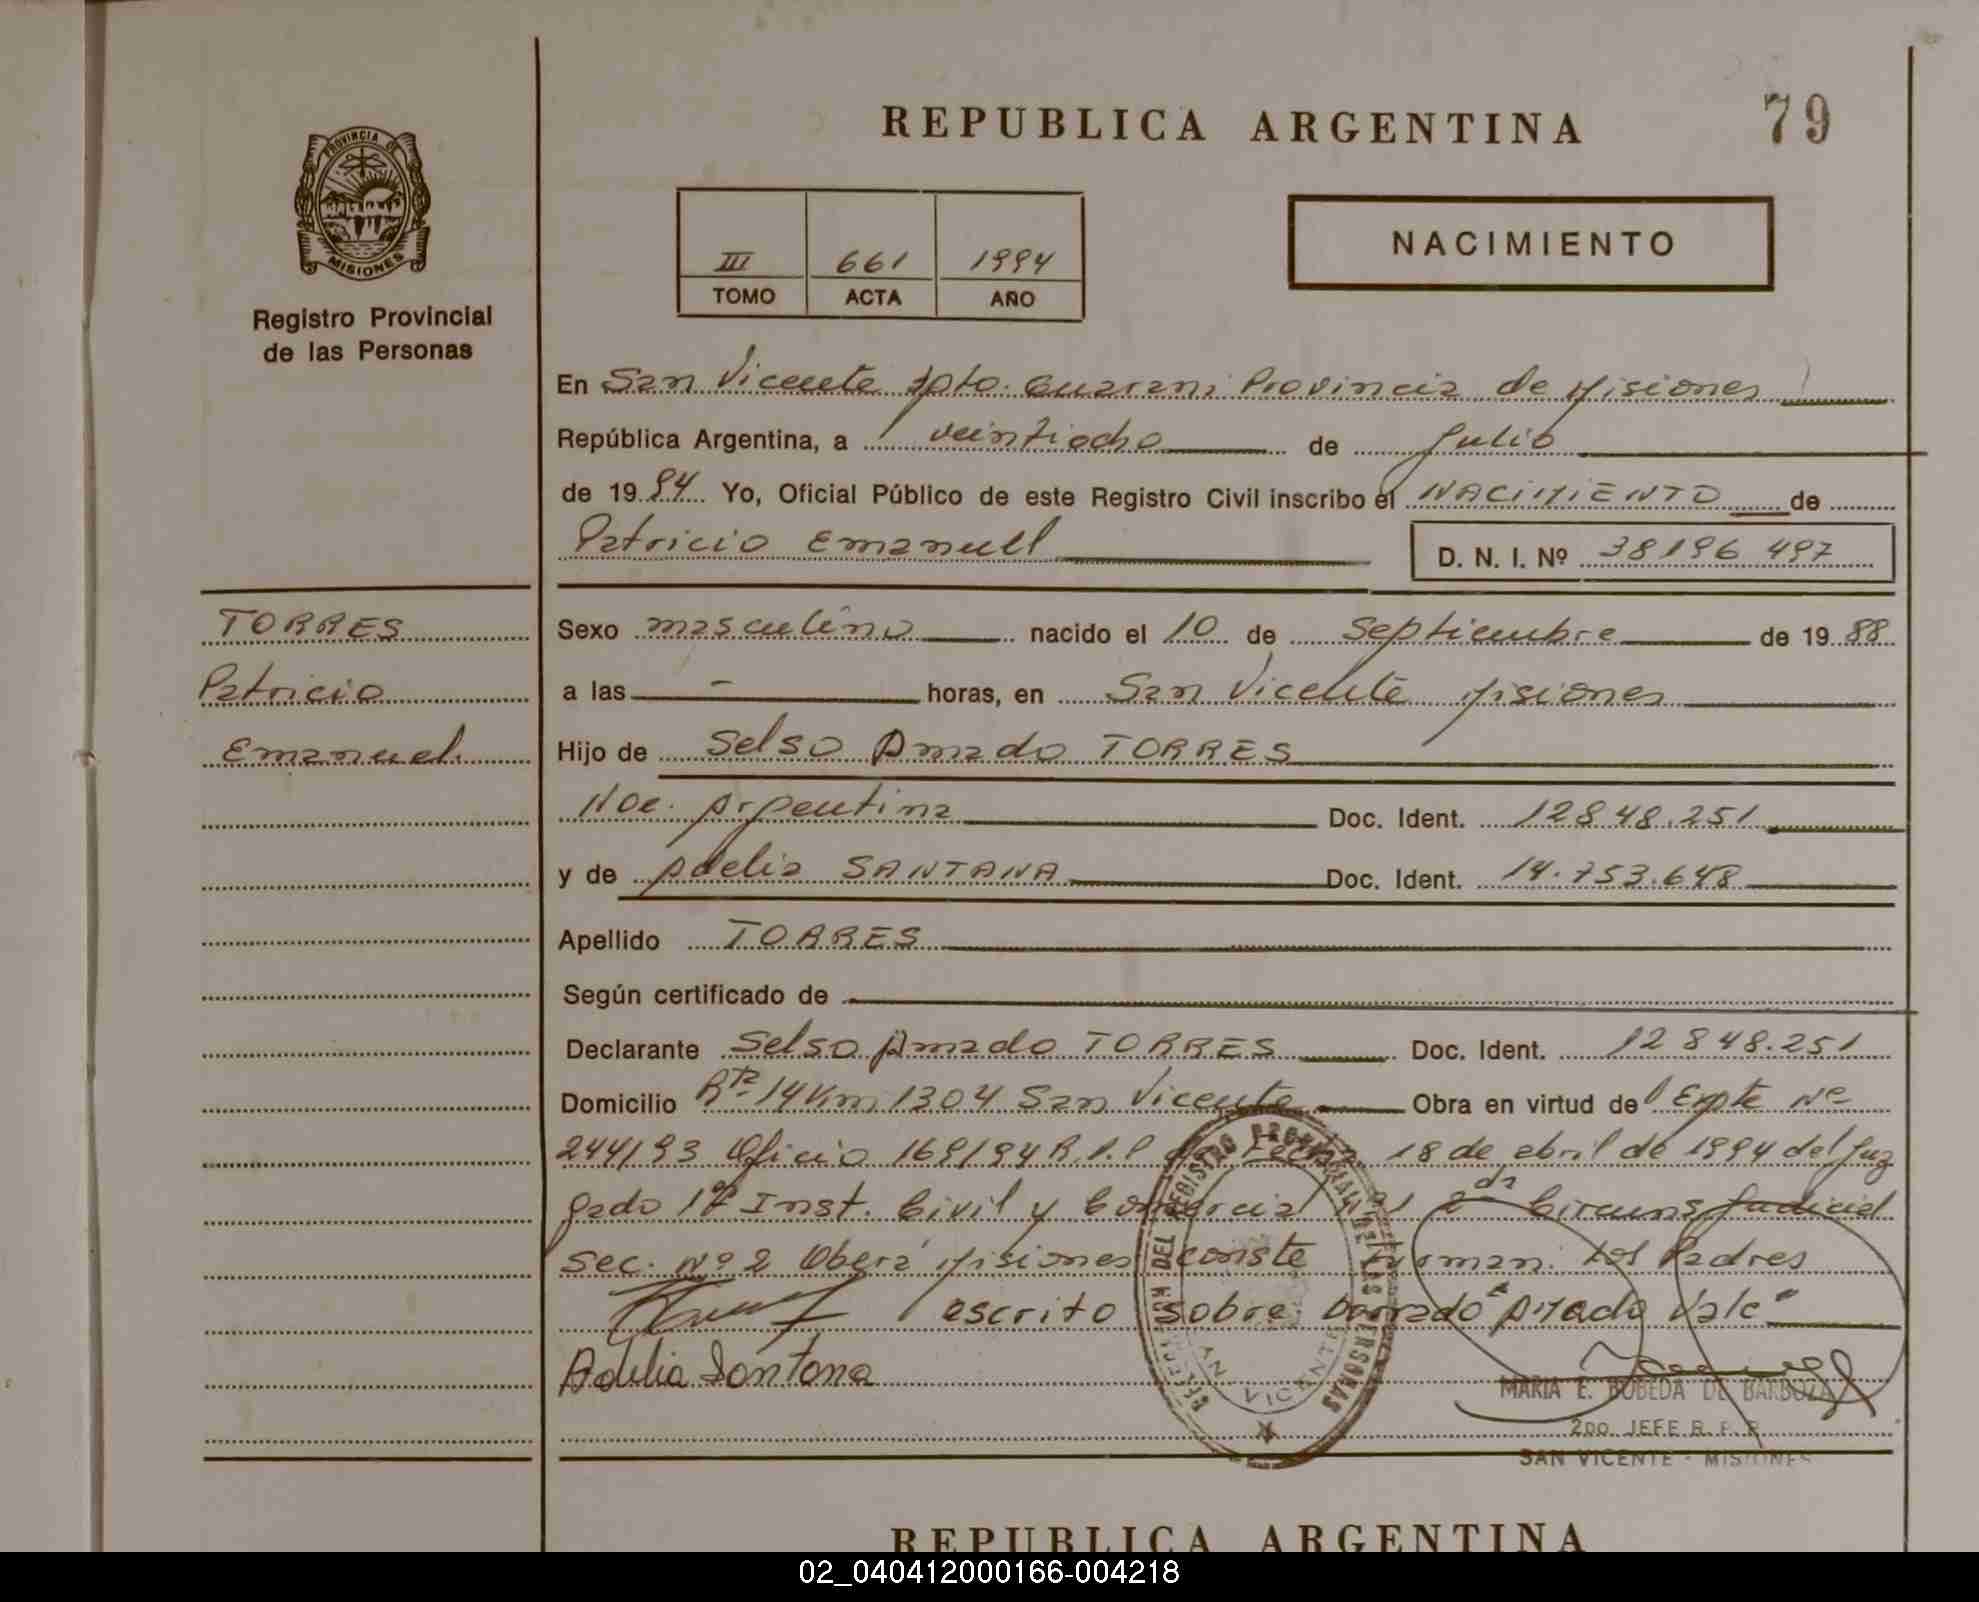 REPUBLICA ARGENTINA
79
PROVINCIA DE
MISIONES
Registro Provincial
de las Personas
III 661 1994
TOMO ACTA AÑO
NACIMIENTO
En San Vicente Dpto. Guarani Provincia de Misiones
República Argentina, a veintiocho de Julio
de 1994 Yo, Oficial Público de este Registro Civil inscribo el NACIMIENTO de
Patricio Emanuel
D. N. I. Nº 38196 497
TORRES
Patricio
Emanuel.
Sexo masculino nacido el 10 de Septiembre de 1988
a las - horas, en San Vicente Misiones
Hijo de Selso Amado TORRES
Nac. Argentina Doc. Ident. 12848.251
y de Adelia SANTANA Doc. Ident. 14.753.648
Apellido TORRES
Según certificado de
Declarante Selso Amado TORRES Doc. Ident. 12848.251
Domicilio Rta 14 Km 1304 San Vicente Obra en virtud de Expte Nº
244/93 Oficio 169/94 R.P.P de Fecha 18 de abril de 1994 del Juz
gado 1º Inst. Civil y Comercial Nº 1 2da Circuns Judicial
Sec. Nº 2 Oberá Misiones conste Firman: Los Padres
escrito sobre borrado "Amado Vale"
Adelia Santana
DELEGACION DEL REGISTRO PROVINCIAL DE LAS PERSONAS
SAN VICENTE
MARIA E. BOBEDA DE BARBOZA
2DO. JEFE R. P. P.
SAN VICENTE - MISIONES
REPUBLICA ARGENTINA
02_040412000166-004218